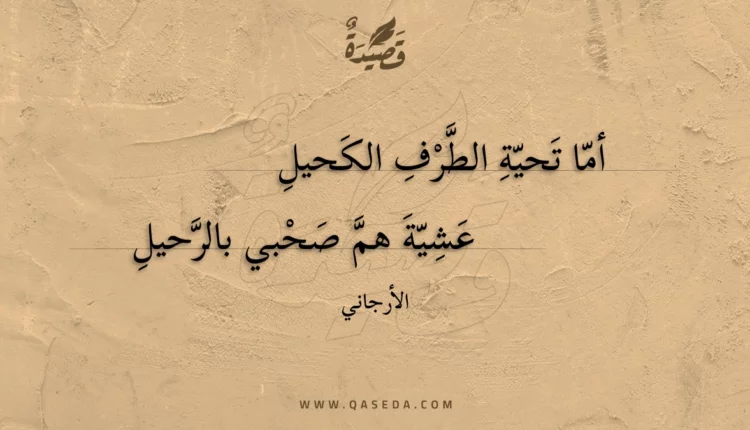 قَصِيْدَةٌ
أمّا تَحيّةِ الطَّرْفِ الكَحيلِ
عَشِيّةَ همَّ صَحْبي بالرَّحيلِ
الأرجاني
WWW.QASEDA.COM